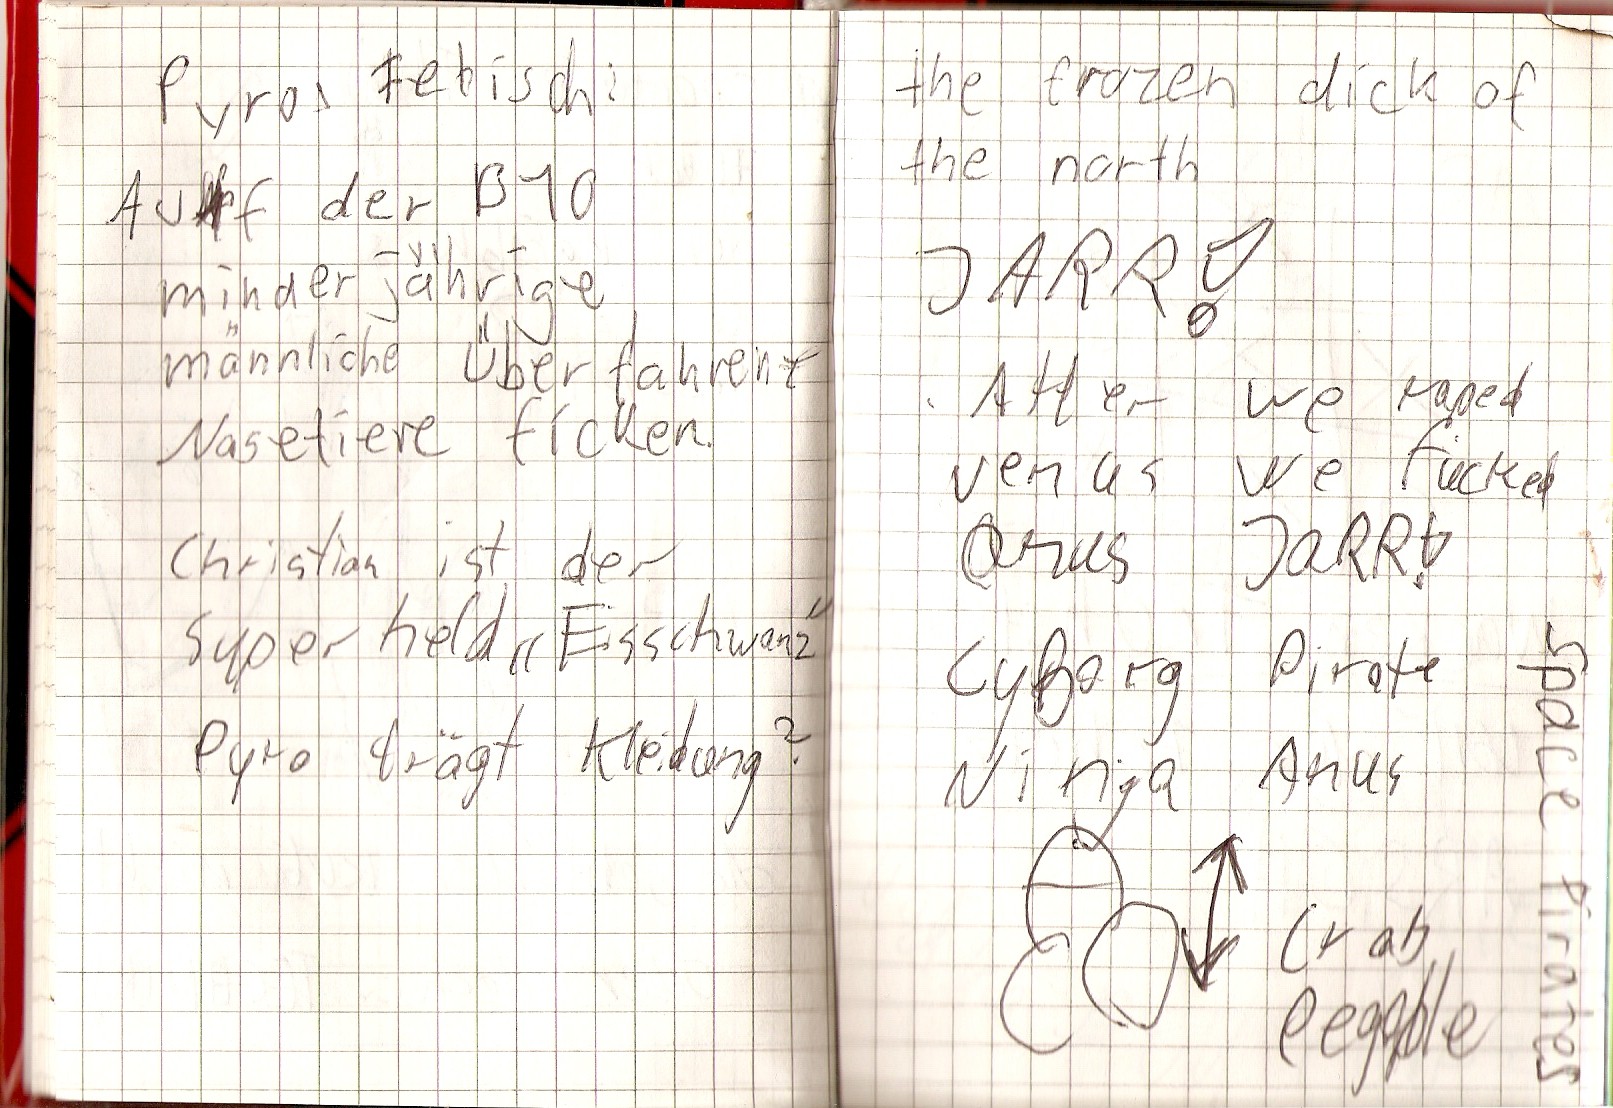 Pyros Fetisch:
Auf der B10
minderjährige
männliche Überfahrene
Nasetiere ficken.
Christian ist der
Superheld „Eisschwanz“
Pyro trägt Kleidung?
the frozen dick of
the north
JARR!
After we raped
venus we fucked
Anus JaRR!
Cyborg Pirate
Ninja Anus
Crab
People
Space Pirates